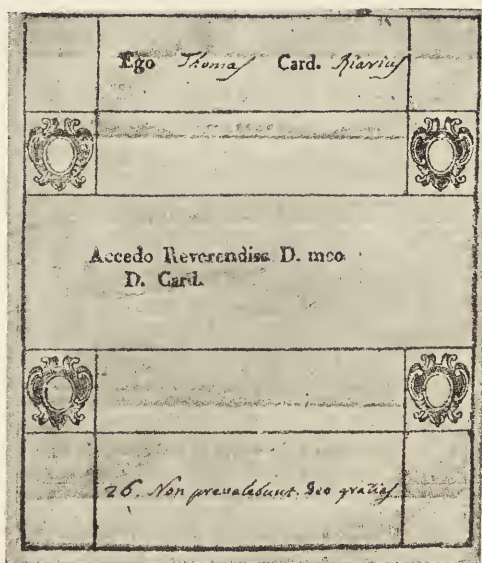 Ego Thomas Card. Riarius
Accedo Reverendiss. D. meo
D. Card.
26. Non prevalebunt. Deo gratias